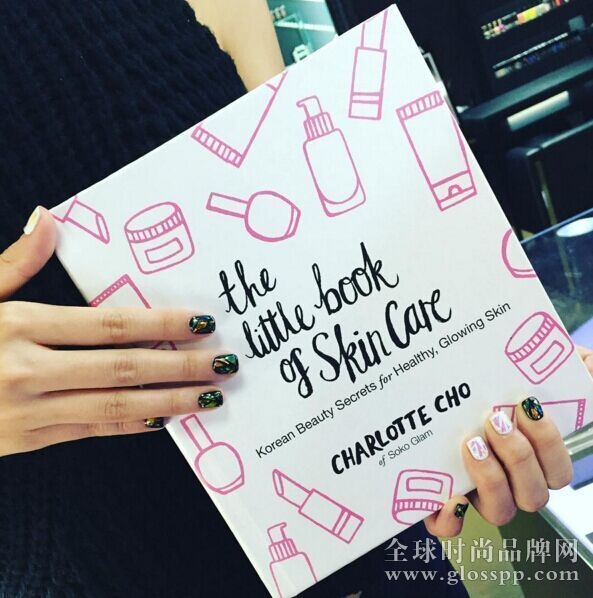 the
little book
of Skin Care
Korean Beauty Secrets for Healthy, Glowing Skin
CHARLOTTE CHO
of Soko Glam
全球时尚品牌网
www.glosspp.com